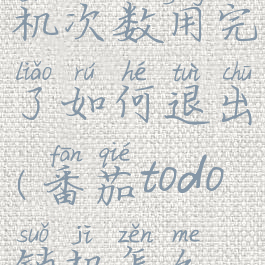 机次数用完
liǎo rú hé tuì chū
了如何退出
fān qié
(番茄todo
suǒ jī zěn me
锁机怎么